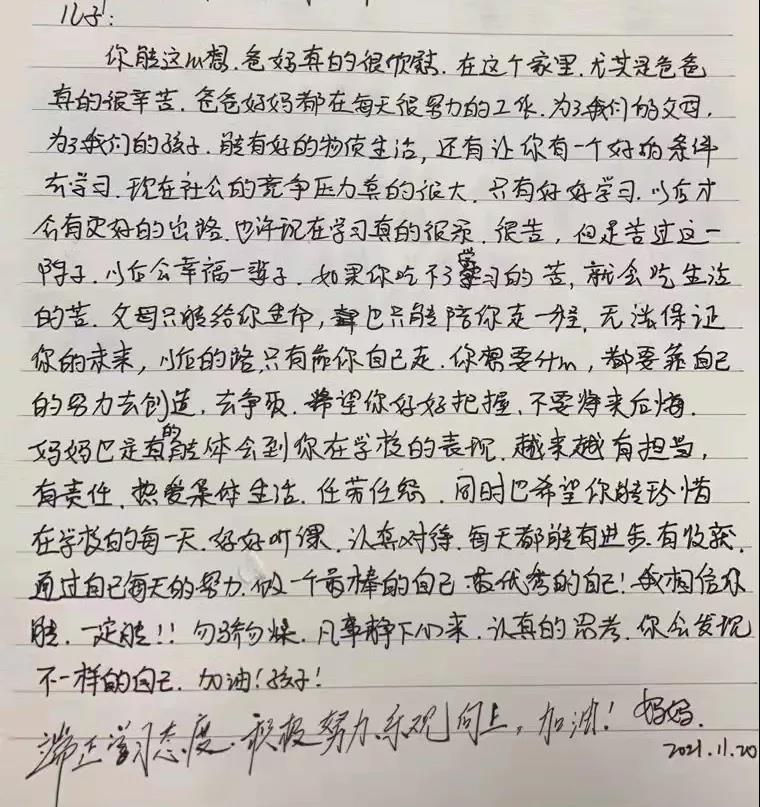 儿子:
你能这么想.爸妈真的很欣慰.在这个家里.尤其是爸爸
真的很辛苦.爸爸妈妈都在每天很努力的工作.为了我们的父母,
为了我们的孩子.能有好的物质生活,还有让你有一个好的条件
去学习.现在社会的竞争压力真的很大.只有好好学习.以后才
会有更好的出路.也许现在学习真的很累.很苦,但是苦过这一
阵子.以后会幸福一辈子.如果你吃不了学习的苦,就会吃生活
的苦.父母只能给你生命,也只能陪你走一程,无法保证
你的未来,以后的路,只有靠你自己走.你想要什么,都要靠自己
的努力去创造.去争取.希望你好好把握.不要将来后悔.
妈妈也是真的能体会到你在学校的表现.越来越有担当,
有责任.热爱集体生活.任劳任怨.同时也希望你能珍惜
在学校的每一天.好好听课.认真对待.每天都能有进步.有收获.
通过自己每天的努力.做一个最棒的自己.最优秀的自己!我相信你
能.一定能!!勿骄勿燥.凡事静下心来.认真的思考.你会发现
不一样的自己.加油!孩子!
端正学习态度.积极努力.乐观向上,加油!妈妈.
2021.11.20